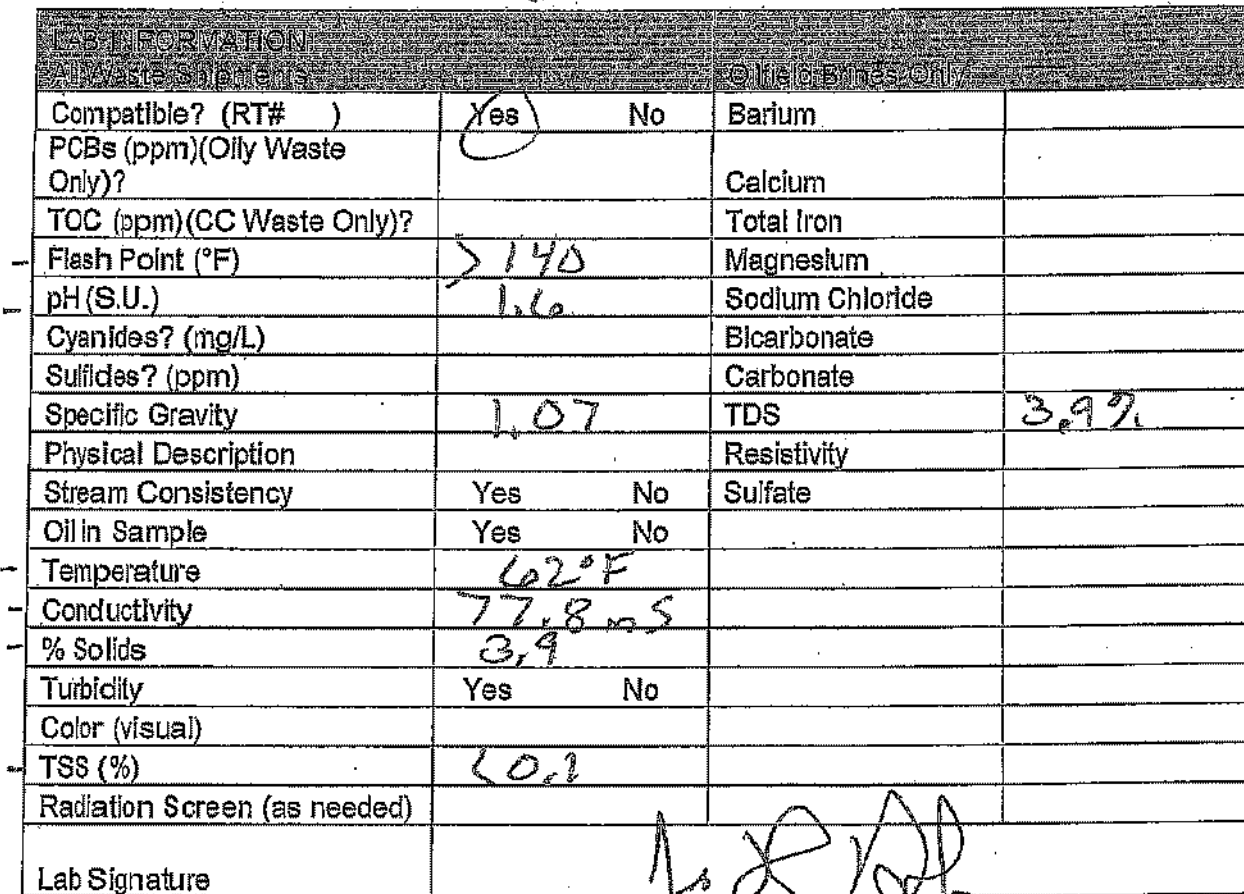 LAB INFORMATION
All Waste Shipments Oilfield Brines Only
Compatible? (RT# ) Yes No Barium
PCBs (ppm)(Oily Waste
Only)? Calcium
TOC (ppm)(CC Waste Only)? Total Iron
Flash Point (°F) >140 Magnesium
pH (S.U.) 1.6 Sodium Chloride
Cyanides? (mg/L) Bicarbonate
Sulfides? (ppm) Carbonate
Specific Gravity 1.07 TDS 3.9%
Physical Description Resistivity
Stream Consistency Yes No Sulfate
Oil in Sample Yes No
Temperature 62°F
Conductivity 77.8 mS
% Solids 3.9
Turbidity Yes No
Color (visual)
TSS (%) <0.1
Radiation Screen (as needed)
Lab Signature